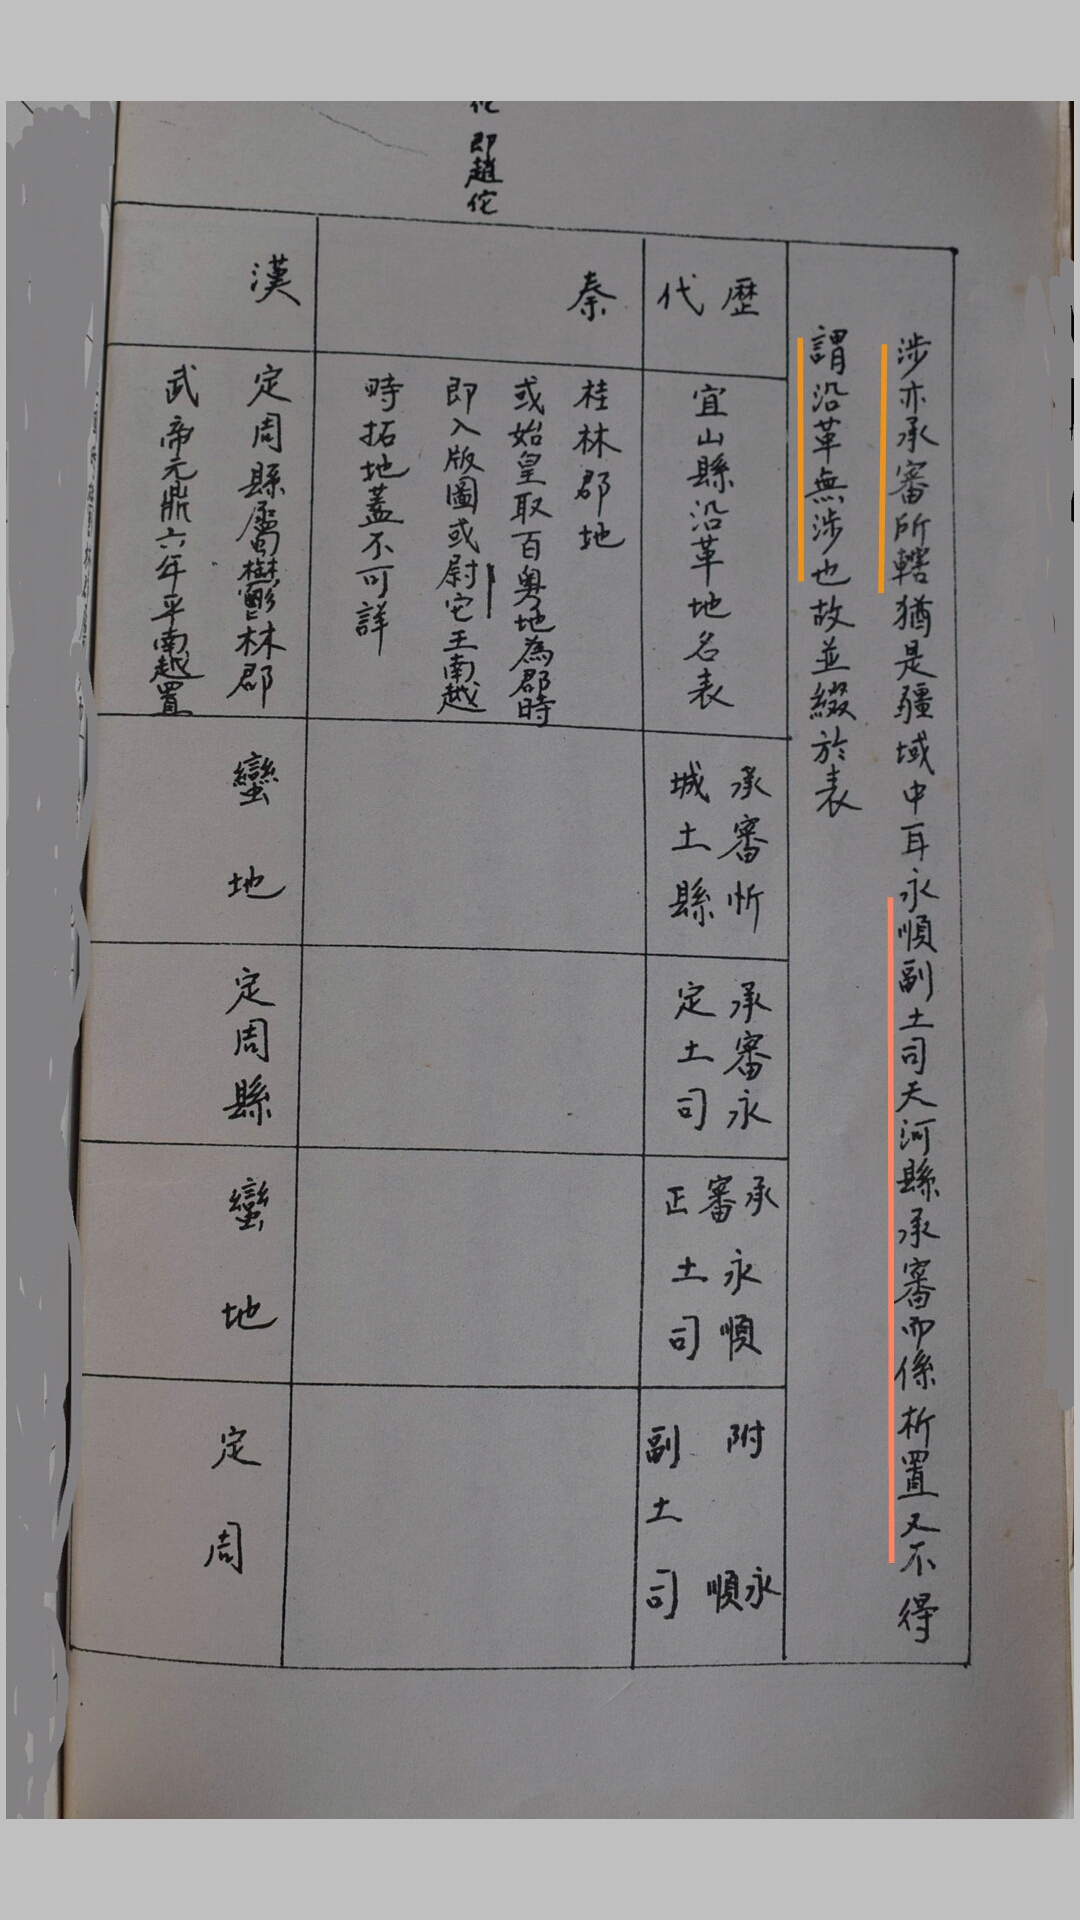 涉亦承審所轄猶是疆域中耳永順副土司天河縣承審而係析置又不得
謂沿革無涉也故並綴於表
歷代
宜山縣沿革地名表
承審忻城土縣
承審永定土司
承審永順正土司
附永順副土司
秦
桂林郡地
或始皇取百粵地為郡時
即入版圖或尉它王南越
時拓地蓋不可詳
即趙佗
漢
定周縣屬鬱林郡
武帝元鼎六年平南越置
蠻地
定周縣
蠻地
定周